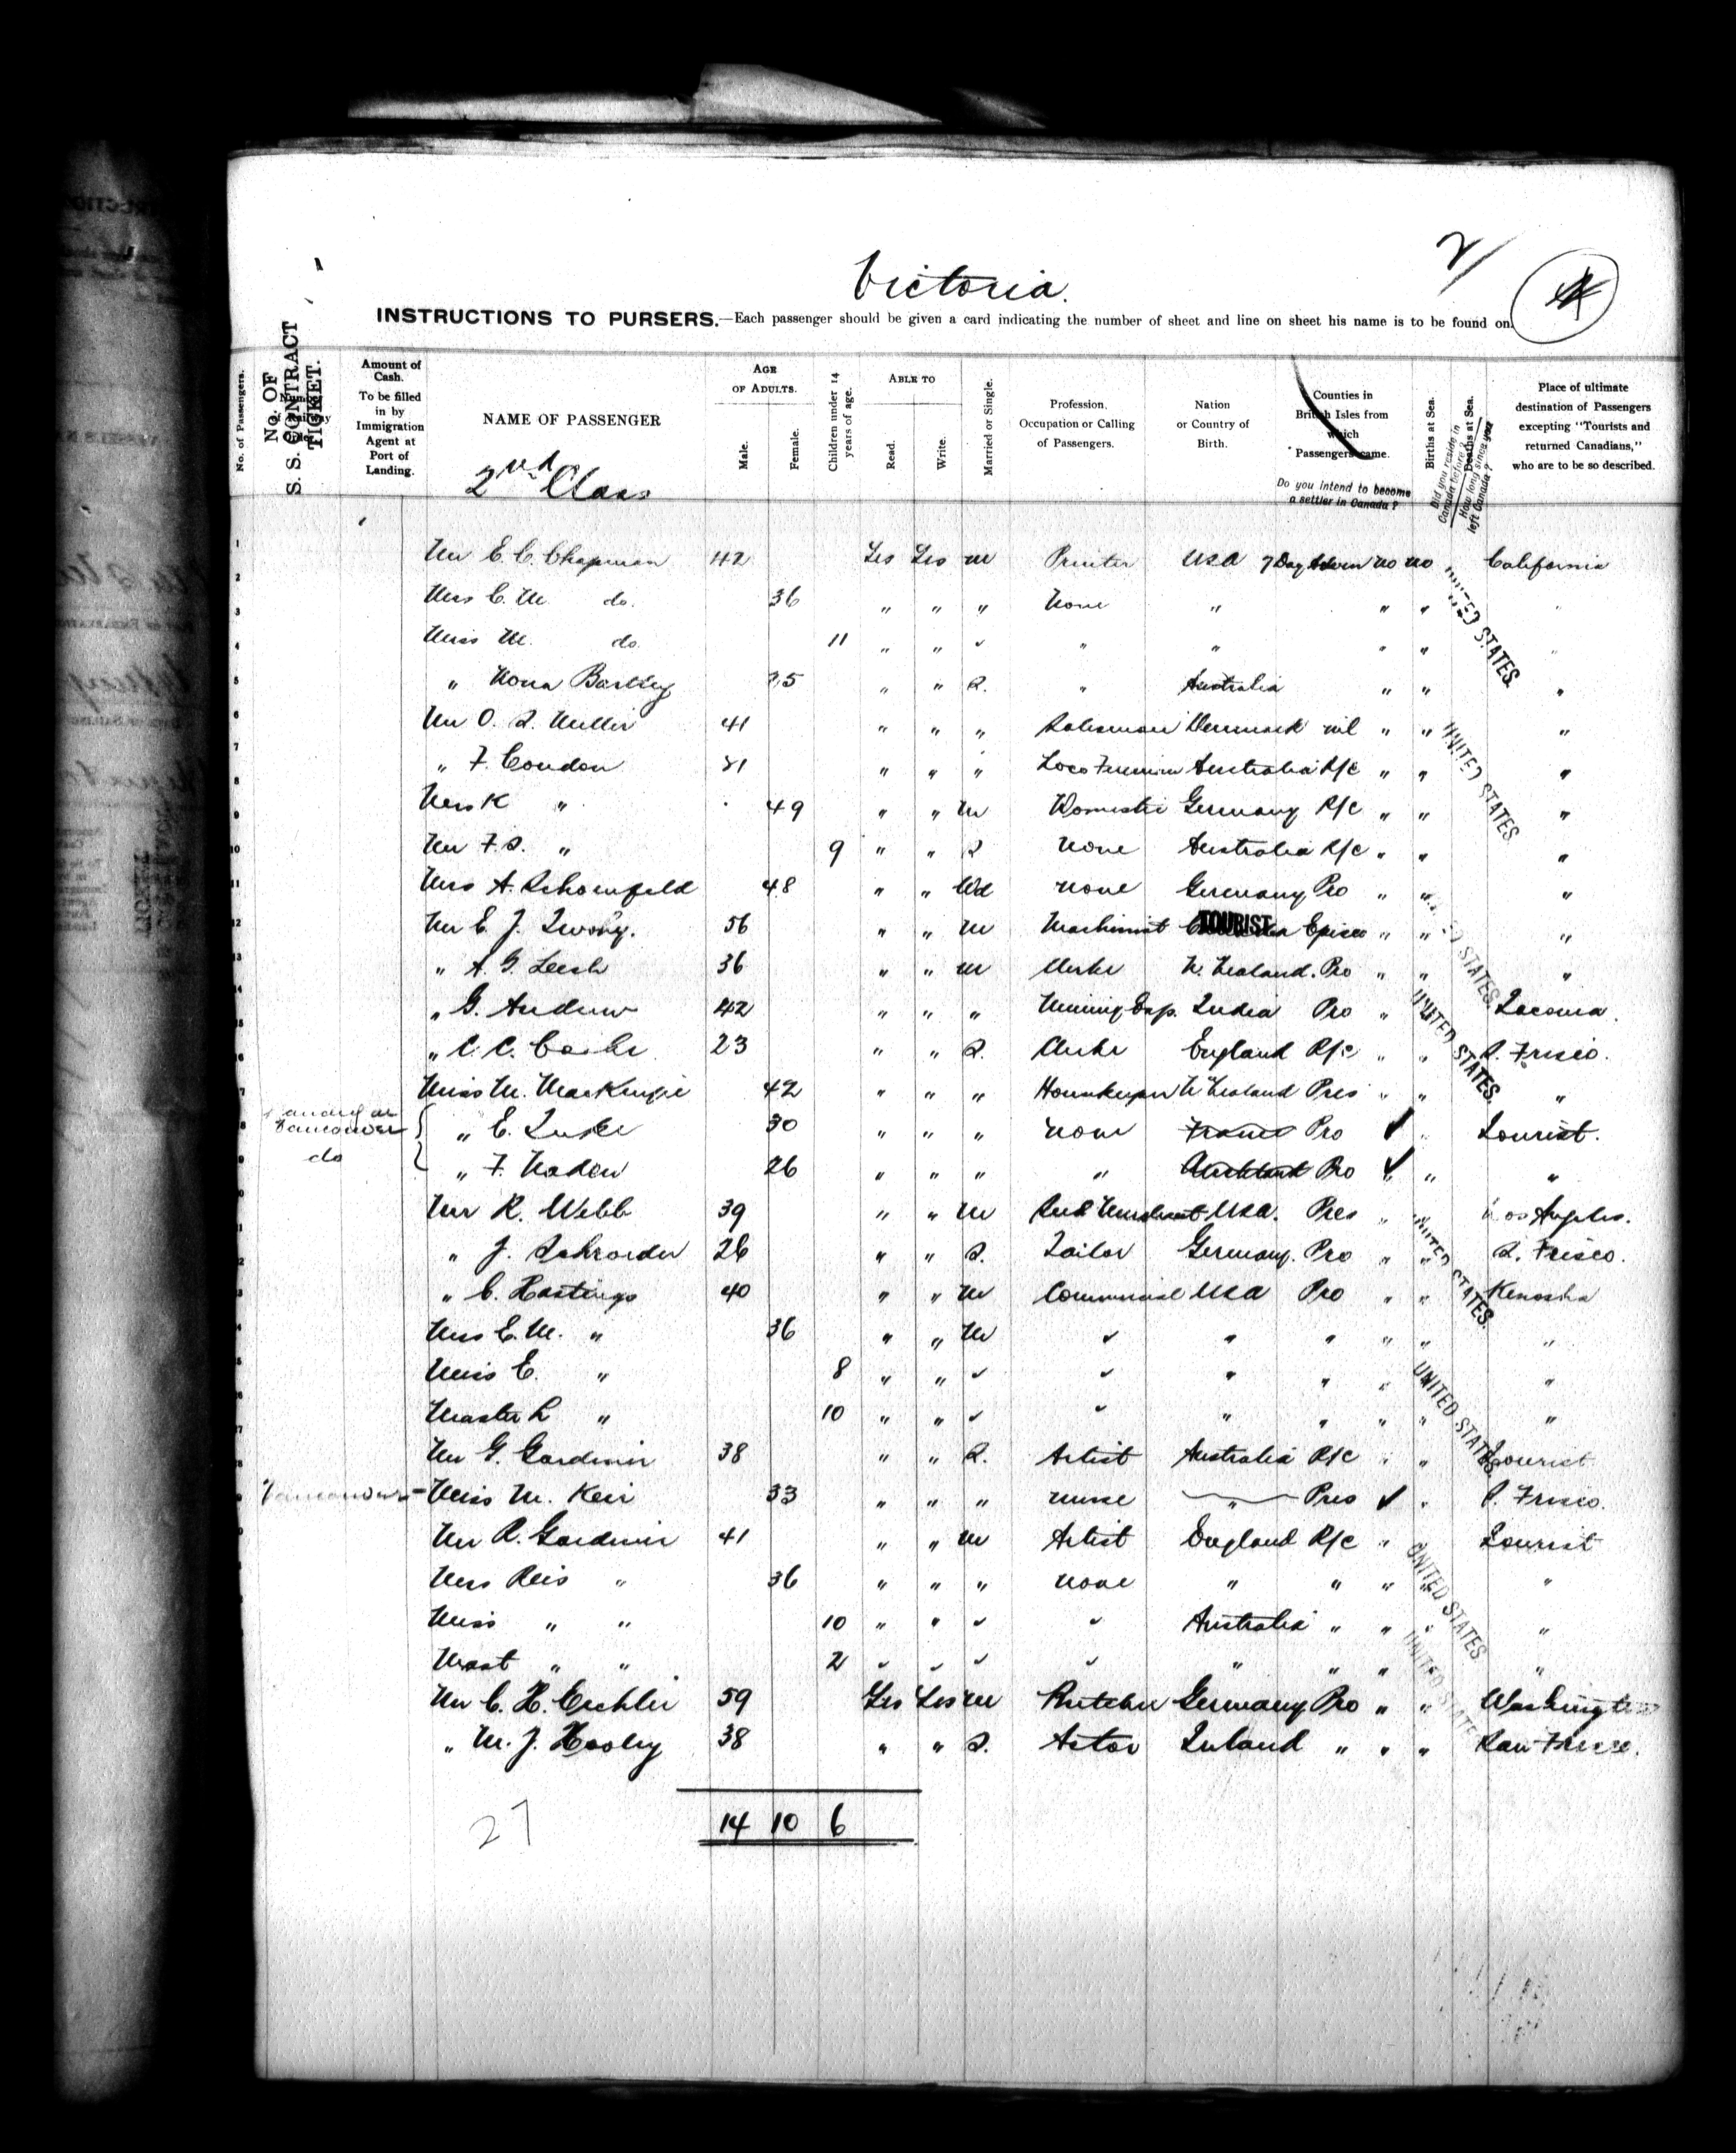 Victoria.
2/
INSTRUCTIONS TO PURSERS.—Each passenger should be given a card indicating the number of sheet and line on sheet his name is to be found on.
No. of Passengers.
No. OF S. S. CONTRACT TICKET.
Amount of Cash. To be filled in by Immigration Agent at Port of Landing.
NAME OF PASSENGER
2nd Class
AGE OF ADULTS. Male. Female.
Children under 14 years of age.
ABLE TO Read. Write.
Married or Single.
Profession, Occupation or Calling of Passengers.
Nation or Country of Birth.
Counties in British Isles from which Passengers came.
Do you intend to become a settler in Canada?
Births at Sea. Deaths at Sea.
Did you reside in Canada before? How long since you left Canada?
Place of ultimate destination of Passengers excepting "Tourists and returned Canadians," who are to be so described.
1 Mr E. C. Chapman 42 Yes Yes M Printer USA 7 Day Adven no no California
2 Mrs C. M. do. 36 " " " None " " " "
3 Miss M. do. 11 " " ✓ " " " " "
4 " Nona 35 " " S. " Australia " " "
5 Mr O. S. 41 " " " Salesman Denmark nil " " "
6 " F. Condon 31 " " " Loco Fireman Australia R/C " " "
7 Mrs K " 49 " " M Domestic Germany R/C " " "
8 Mr F. S. " 9 " " S None Australia R/C " " "
9 Mrs A. Schoenfeld 48 " " Wd None Germany Pro " " "
10 Mr E. J. 56 " " M Machinist TOURIST " " "
11 " A. G. Leech 36 " " M Clerk N. Zealand. Pro " " "
12 " G. Andrew 42 " " " Mining Exp. India Pro " " Tacoma.
13 " C. C. 23 " " S. Clerk England R/C " " S. Frisco.
14 Miss M. MacKenzie 42 " " " Housekeeper N Zealand Pres " " "
Vancouver { " E. 30 " " " None France Pro ✓ " Tourist.
do " F. 26 " " " " Auckland Pro ✓ " "
Mr R. Webb 39 " " M USA. Pres " " Los Angeles.
" J. Schroeder 26 " " S. Tailor Germany. Pro " " S. Frisco.
" C. Hastings 40 " " M Commercial USA Pro " " Kenosha
Mrs E. M. " 36 " " M ✓ " " " " "
Miss E. " 8 " " ✓ ✓ " " " " "
Master L " 10 " " ✓ ✓ " " " " "
Mr G. Gardiner 38 " " S. Artist Australia R/C " " Tourist
Vancouver - Miss M. Keir 33 " " " Nurse " Pres ✓ " S. Frisco.
Mr R. Gardiner 41 " " M Artist England R/C " Tourist
Mrs Reis " 36 " " " None " " " " "
Miss " " 10 " " ✓ ✓ Australia " " " "
Mast " " 2 ✓ ✓ ✓ ✓ " " " "
Mr C. H. 59 Yes Yes M Butcher Germany Pro " " Washington
" M. J. Hooley 38 " " S. Actor " " "
UNITED STATES.
UNITED STATES.
UNITED STATES.
UNITED STATES.
UNITED STATES.
UNITED STATES.
UNITED STATES.
UNITED STATES.
27
14 10 6